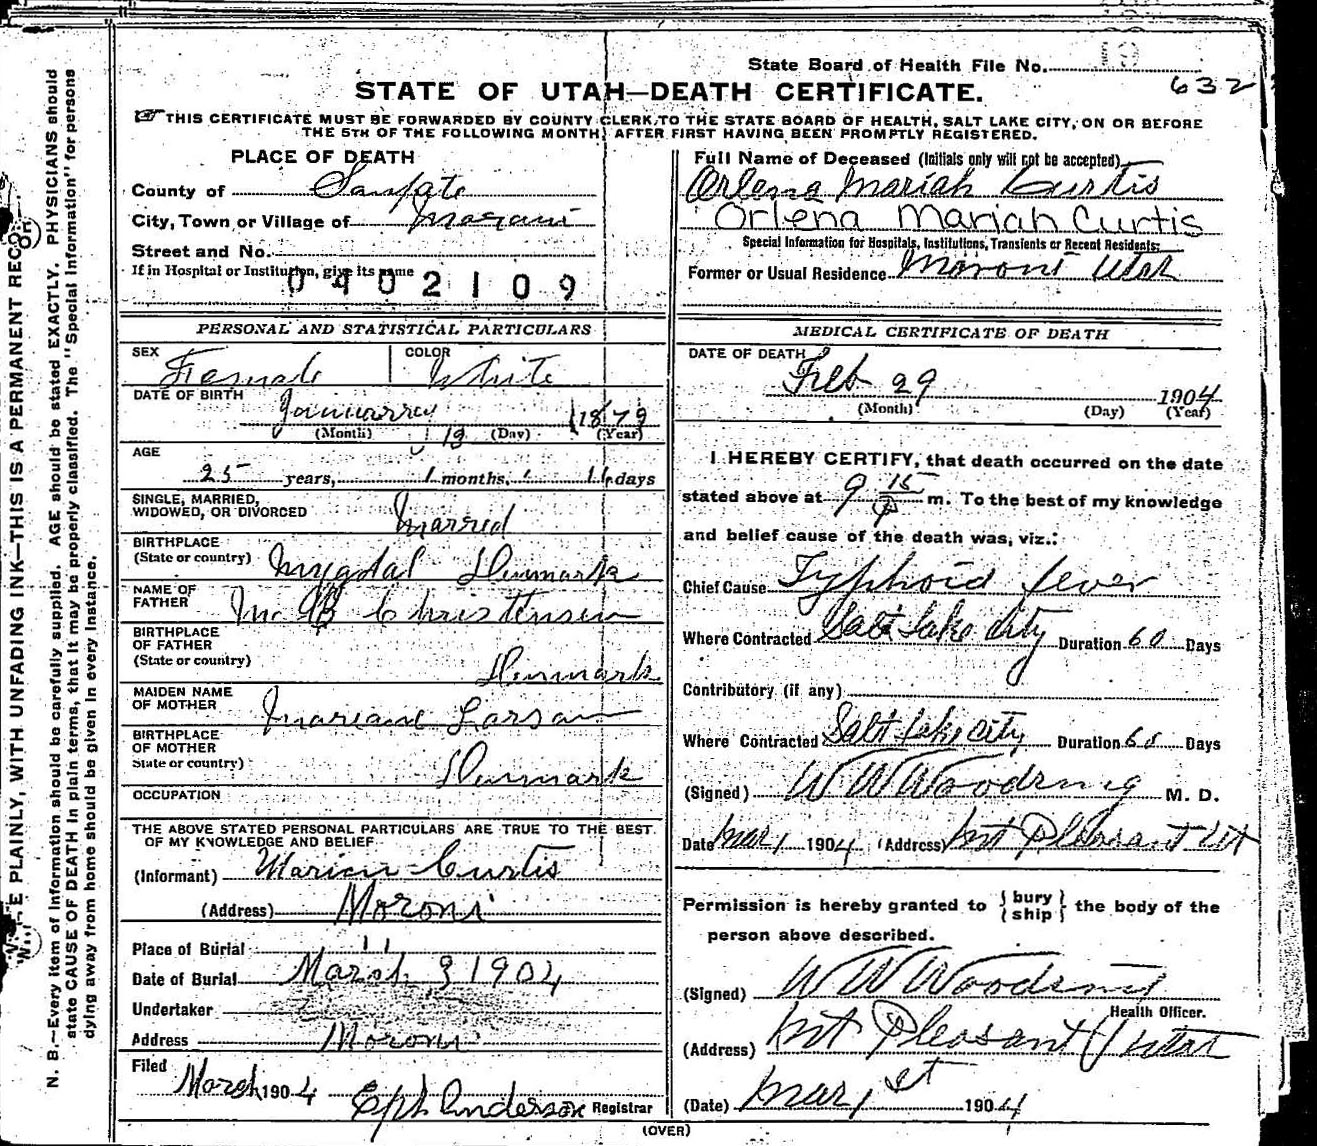 State Board of Health File No.
632
STATE OF UTAH—DEATH CERTIFICATE.
THIS CERTIFICATE MUST BE FORWARDED BY COUNTY CLERK TO THE STATE BOARD OF HEALTH, SALT LAKE CITY, ON OR BEFORE
THE 5TH OF THE FOLLOWING MONTH, AFTER FIRST HAVING BEEN PROMPTLY REGISTERED.
PLACE OF DEATH
County of Sanpete
City, Town or Village of Moroni
Street and No.
If in Hospital or Institution, give its name
0402109
Full Name of Deceased (Initials only will not be accepted)
Orlena Mariah Curtis
Orlena Mariah Curtis
Special Information for Hospitals, Institutions, Transients or Recent Residents:
Former or Usual Residence Moroni Utah
PERSONAL AND STATISTICAL PARTICULARS
SEX Female
COLOR White
DATE OF BIRTH January 1879
(Month) 19 (Day) (Year)
AGE
25 years, 1 months, days
SINGLE, MARRIED,
WIDOWED, OR DIVORCED Married
BIRTHPLACE
(State or country) Mygdal Denmark
NAME OF
FATHER Christensen
BIRTHPLACE
OF FATHER
(State or country) Denmark
MAIDEN NAME
OF MOTHER Mariane Larsen
BIRTHPLACE
OF MOTHER
State or country) Denmark
OCCUPATION
THE ABOVE STATED PERSONAL PARTICULARS ARE TRUE TO THE BEST
OF MY KNOWLEDGE AND BELIEF
(Informant) Curtis
(Address) Moroni
Place of Burial 〃
Date of Burial March 3 1904
Undertaker
Address Moroni
Filed
March 1904 Eph Anderson Registrar
MEDICAL CERTIFICATE OF DEATH
DATE OF DEATH
Feb 29 1904
(Month) (Day) (Year)
I HEREBY CERTIFY, that death occurred on the date
stated above at 9 15 P m. To the best of my knowledge
and belief cause of the death was, viz.:
Chief Cause Typhoid fever
Where Contracted Salt Lake City Duration 60 Days
Contributory (if any)
Where Contracted Salt Lake City Duration 60 Days
(Signed) W W Woodring M. D.
Date Mar 1 1904 (Address) Mt Pleasant Ut
Permission is hereby granted to { bury
ship } the body of the
person above described.
(Signed) W W Woodring
Health Officer.
(Address) Mt Pleasant Utah
(Date) Mar 1st 1904
(OVER)
N. B.—Every item of information should be carefully supplied. AGE should be stated EXACTLY. PHYSICIANS should
state CAUSE OF DEATH in plain terms, that it may be properly classified. The "Special Information" for persons
dying away from home should be given in every instance.
PLAINLY, WITH UNFADING INK—THIS IS A PERMANENT